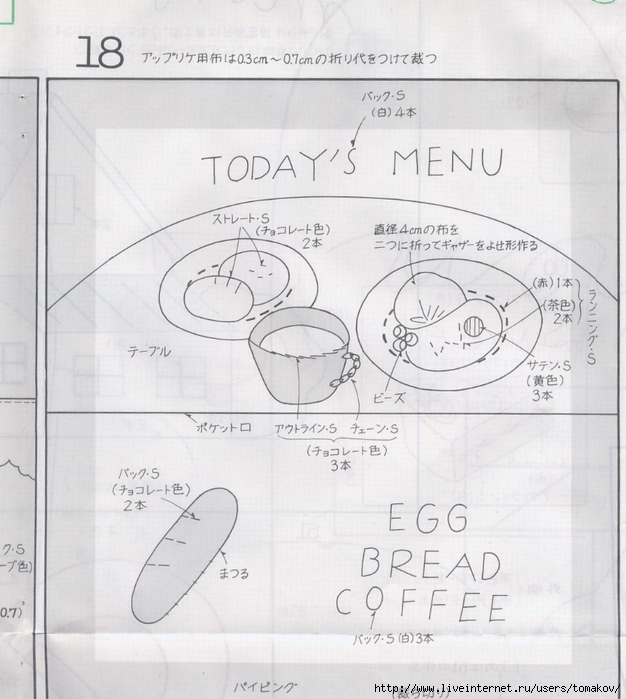 18 アップリケ用布は0.3cm〜0.7cmの折り代をつけて裁つ
バック・S
(白)4本
TODAY'S MENU
ストレート・S
(チョコレート色)
2本
直径4cmの布を
二つに折ってギャザーをよせ形作る
(赤)1本
(茶色)
2本
ランニング・S
テーブル
サテン・S
(黄色)
3本
ビーズ
ポケット口
アウトライン・S チェーン・S
(チョコレート色)
3本
バック・S
(チョコレート色)
2本
EGG
BREAD
COFFEE
まつる
バック・S(白)3本
ク・S
0.7)
パイピング
http://www.liveinternet.ru/users/tomakov/